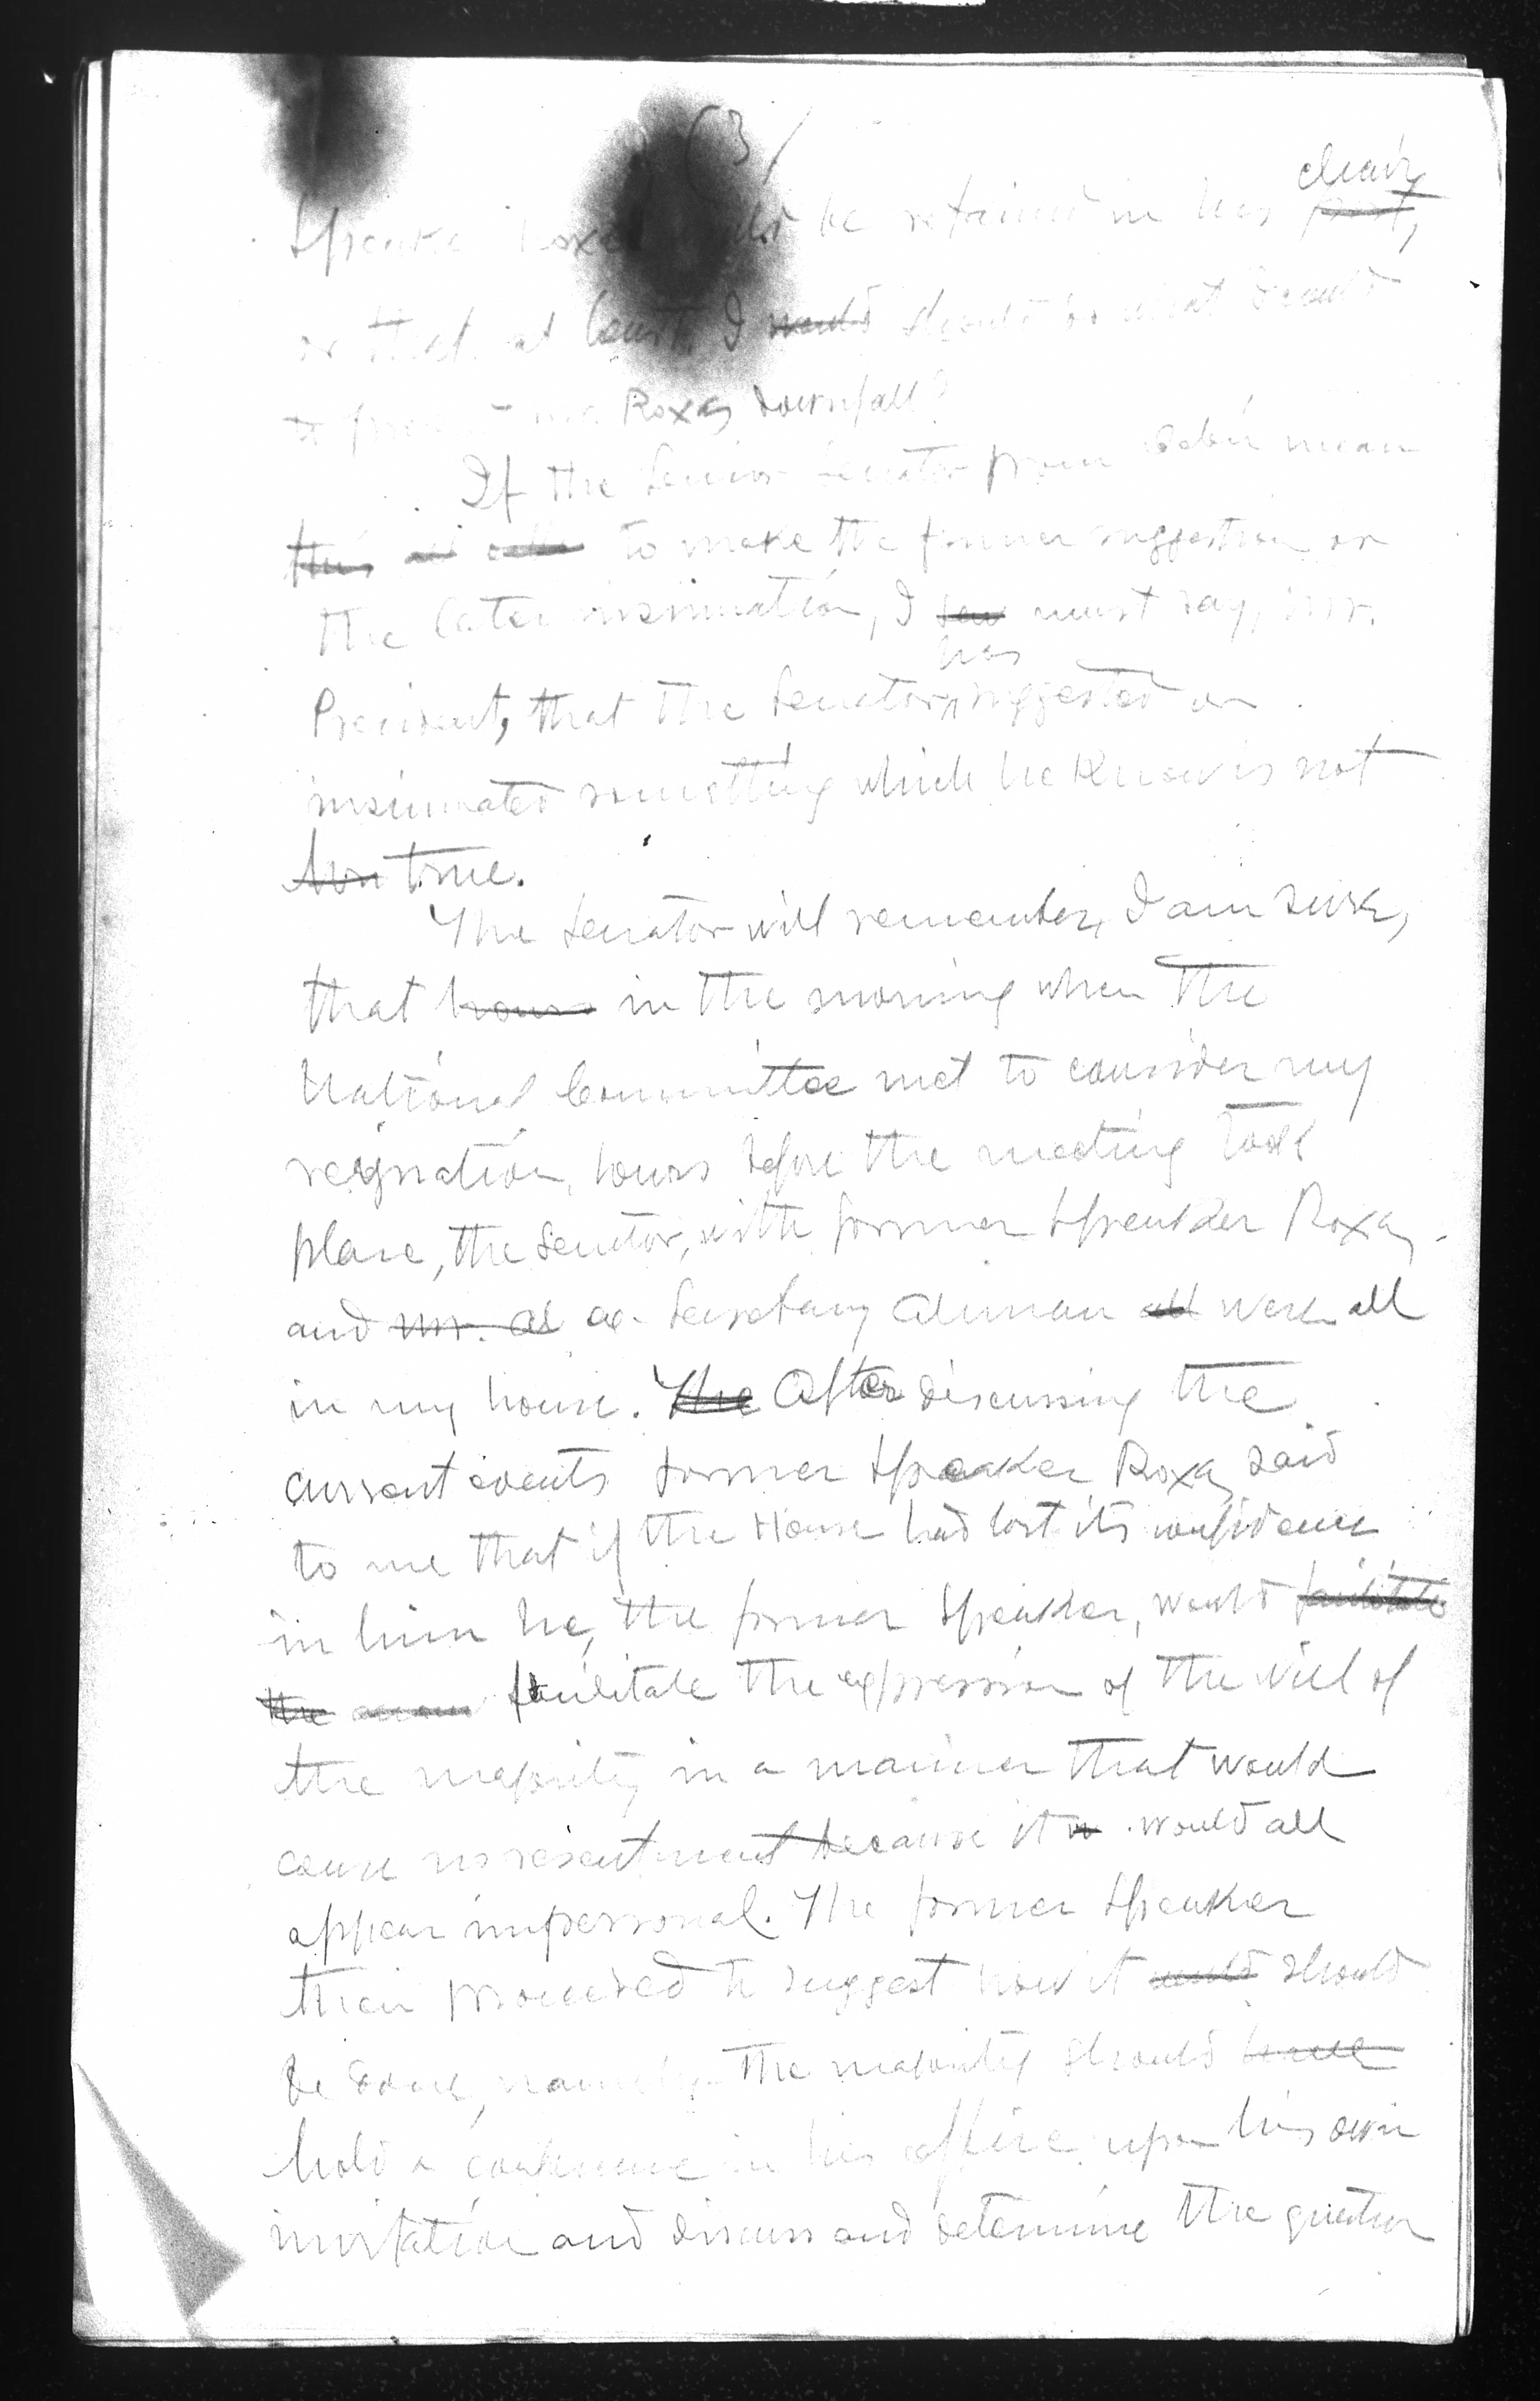 (3)
Speaker Roxas be retained in his post, chair
or that at least I would should do what I could
to prevent Mr. Roxas downfall?
If the Senior Senator from Cebú mean
this to make the former suggestion or
the later insinuation, I must say, Mr.
President, that the Senator has suggested or
insinuated something which he knows is not
true.
The Senator will remember, I am sure,
that hours in the morning when the
National Committee met to consider my
resignation, hours before the meeting took
place, the Senator, with former Speaker Roxas
and Mr. Al ex-Secretary Alunan all were all
in my house. The After discussing the
current events former Speaker Roxas said
to me that if the House had lost its confidence
in him he, the former Speaker, would facilitate
the facilitate the expression of the will of
the majority in a manner that would
cause no resentment because it w would all
appear impersonal. The former Speaker
then proceeded to suggest how it would should
be done, namely the majority should have
hold a conference in his office upon his own
invitation and discuss and determine the question